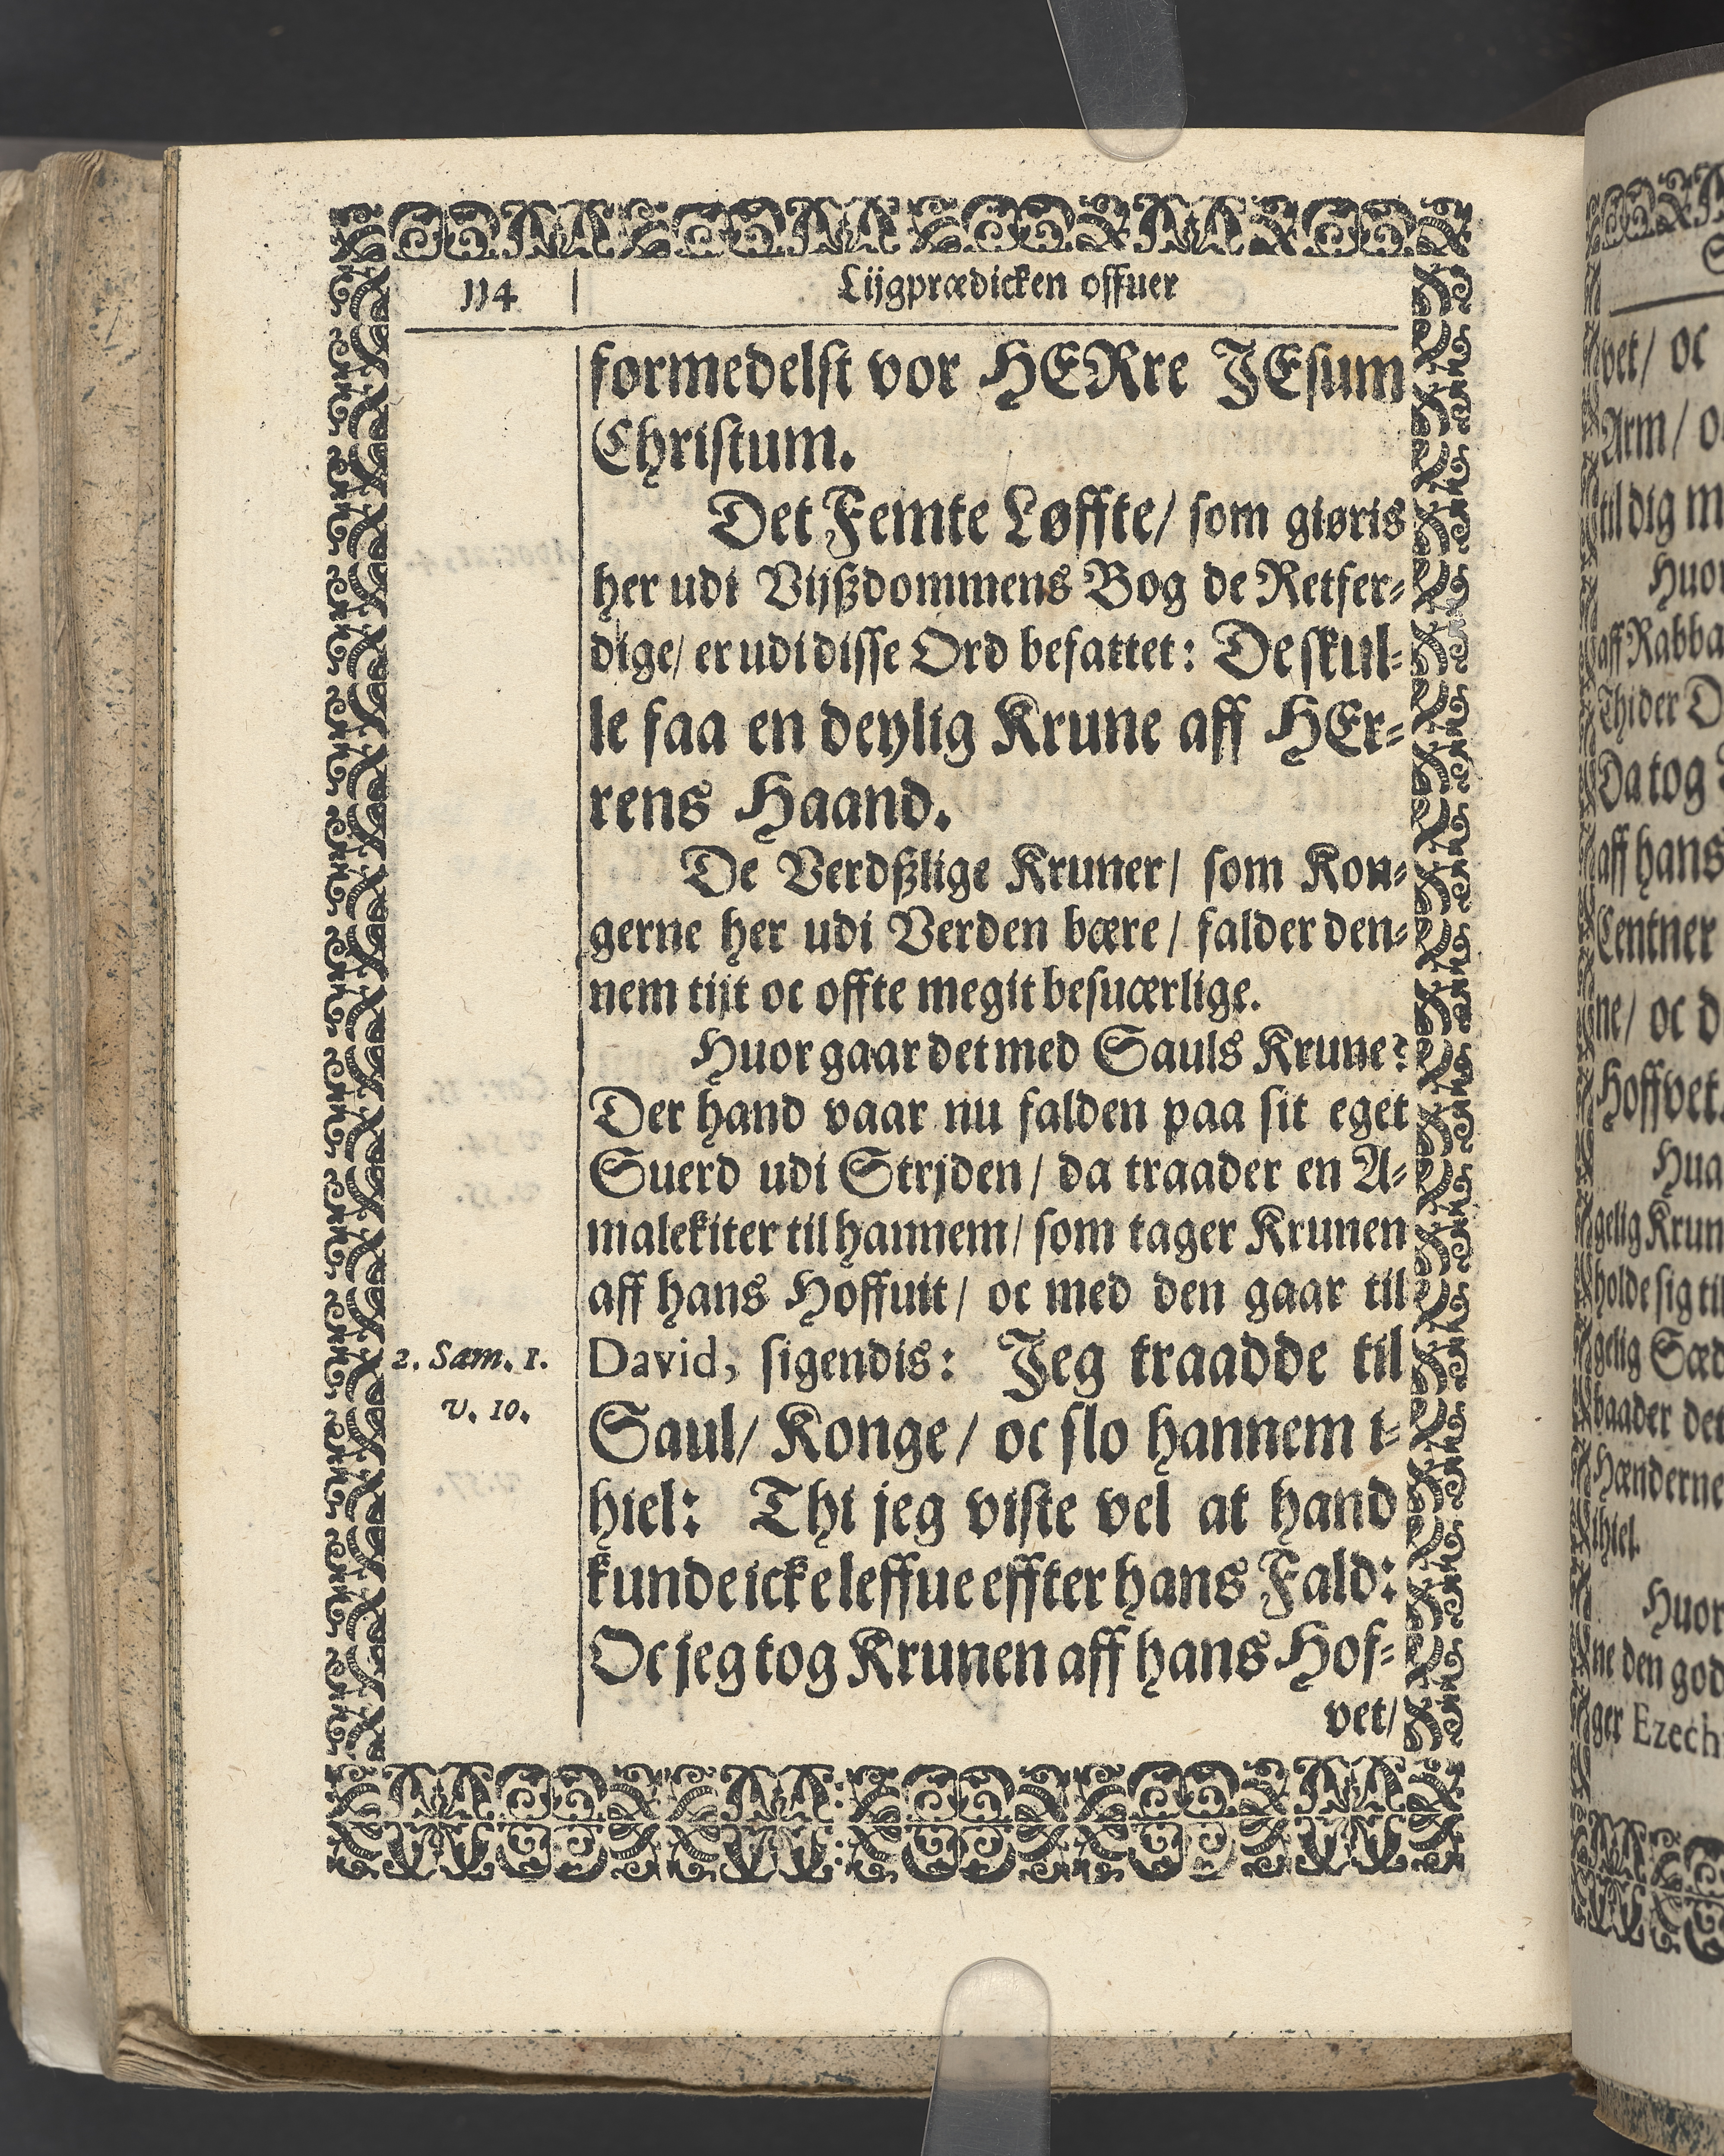 114
Lijgprædicken offuer
formedelst vor HERre JEsum
Christum.
Det Femte Løffte/ som giøris
her udi Vijßdommens Bog de Retfer-
dige/ er udi disse Ord befattet: De skul-
le faa en deylig Krune aff HEr-
rens Haand.
De Verdßlige Kruner/ som Kon-
gerne her udi Verden bære/ falder den-
nem tijt oc offte megit besuærlige.
Huor gaar det med Sauls Krune?
Der hand vaar nu falden paa sit eget
Suerd udi Strjden/ da traader en A-
malekiter til hannem/ som tager Krunen
aff hans Hoffuit/ oc med den gaar til
2. Sam. 1.
David, sigendis: Jeg traadde til
v. 10.
Saul/ Konge/ oc slo hannem i-
hiel: Thi jeg viste vel at hand
kunde icke leffue effter hans Fald:
Oc jeg tog Krunen aff hans Hof-
vet/
vet/ oc
Arm/
til dig
aff Rabba
Thi der
Da tog
aff hans
Centner
ne/ oc
Hoffvet.
holde sig til
gelig
baader det
Hænderne
ihiel.
ne den
ger